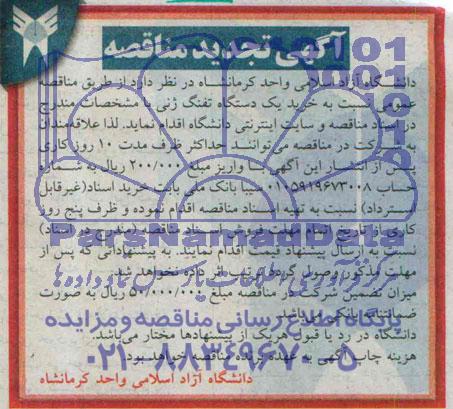 آگهی تجدید مناقصه
دانشگاه آزاد اسلامی واحد کرمانشاه در نظر دارد از طریق مناقصه
عمومی نسبت به خرید یک دستگاه تفنگ ژنی با مشخصات مندرج
در اسناد مناقصه و سایت اینترنتی دانشگاه اقدام نماید. لذا علاقه‌مندان
به شرکت در مناقصه می‌توانند حداکثر ظرف مدت ۱۰ روز کاری
پس از انتشار این آگهی با واریز مبلغ ۲۰۰/۰۰۰ ریال به شماره
حساب ۰۱۰۵۹۱۹۶۷۳۰۰۸ سیبا بانک ملی بابت خرید اسناد (غیرقابل
استرداد) نسبت به تهیه اسناد مناقصه اقدام نموده و ظرف پنج روز
کاری از تاریخ اتمام مهلت فروش اسناد مناقصه (مندرج در اسناد)
نسبت به ارسال پیشنهاد قیمت اقدام نمایند. به پیشنهاداتی که پس از
مهلت مذکور وصول گردد ترتیب اثر داده نخواهد شد.
میزان تضمین شرکت در مناقصه مبلغ ۵۰/۰۰۰/۰۰۰ ریال به صورت
ضمانتنامه بانکی می‌باشد.
دانشگاه در رد یا قبول هریک از پیشنهادها مختار می‌باشد.
هزینه چاپ آگهی به عهده برنده مناقصه خواهد بود.
دانشگاه آزاد اسلامی واحد کرمانشاه
ParsNamadData
گردآوری اطلاعات پارس نماد داده ها
پایگاه اطلاع رسانی مناقصه و مزایده
۰۲۱-۸۸۳۴۹۶۷۰-۵